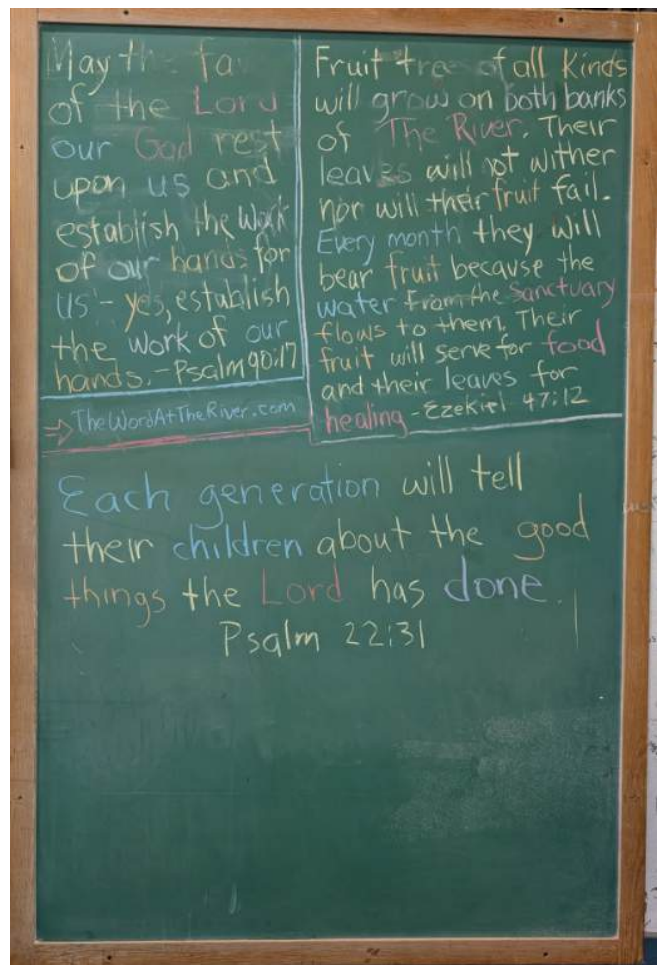 May the fa
of the Lord
our God rest
upon us and
establish the work
of our hands for
us - yes, establish
the work of our
hands. - Psalm 90:17
→ TheWordAtTheRiver.com
Fruit trees of all kinds
will grow on both banks
of The River. Their
leaves will not wither
nor will their fruit fail.
Every month they will
bear fruit because the
water from the Sanctuary
flows to them. Their
fruit will serve for food
and their leaves for
healing - Ezekiel 47:12
Each generation will tell
their children about the good
things the Lord has done.
Psalm 22:31